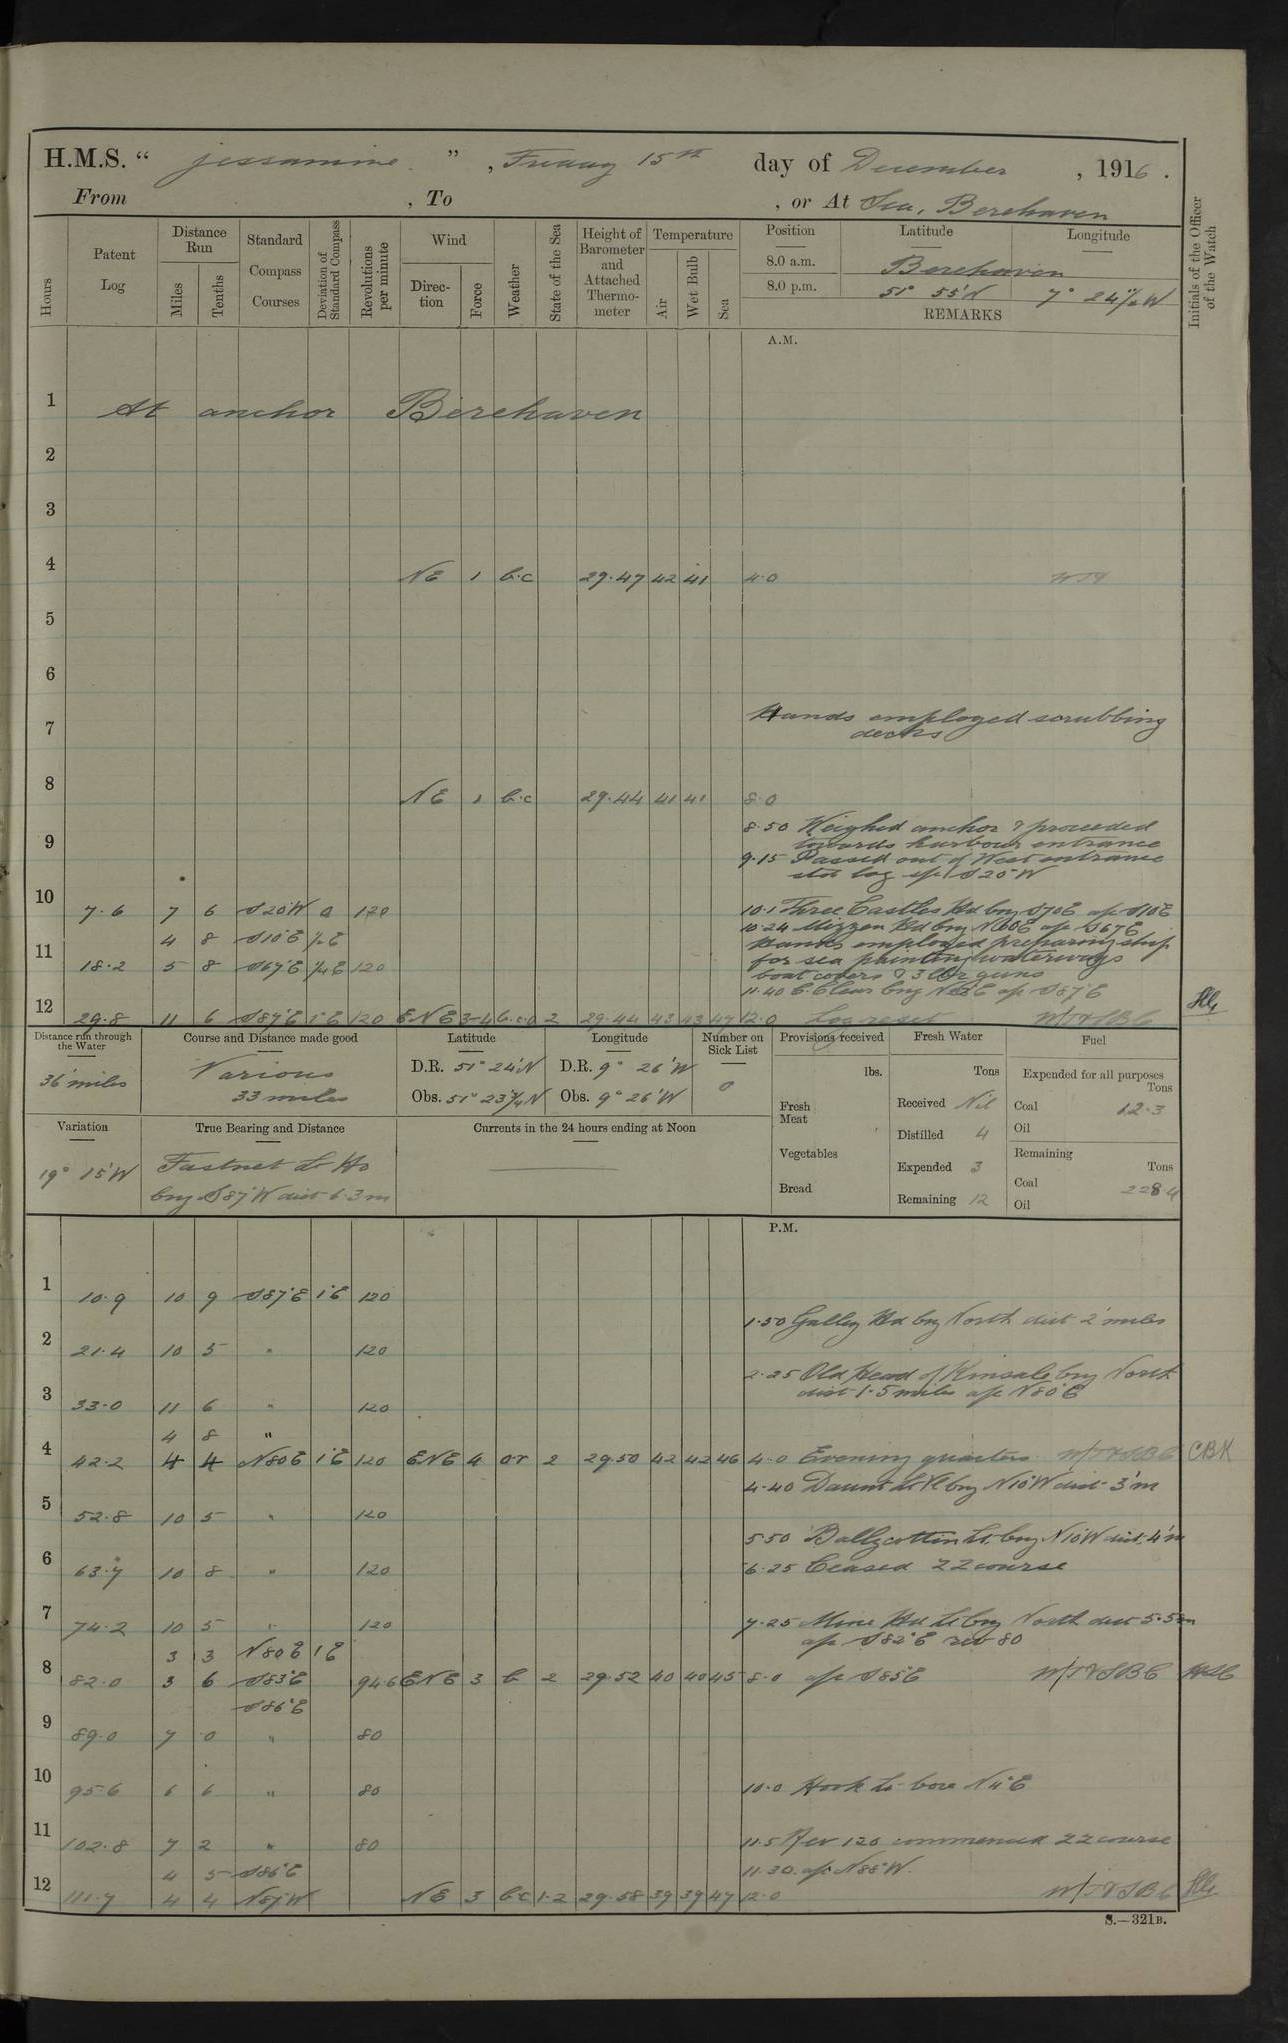 H.M.S. " Jessamine " , Friday 15th day of December , 1916 .
From , To , or At Sea, Berehaven
Hours
Patent Log
Distance Run
Miles
Tenths
Standard Compass Courses
Deviation of Standard Compass
Revolutions per minute
Wind
Direction
Force
Weather
State of the Sea
Height of Barometer and Attached Thermometer
Temperature
Air
Wet Bulb
Sea
Position
Latitude
Longitude
8.0 a.m. Berehaven
8.0 p.m. 51° 55'N 7° 24½'W
REMARKS
Initials of the Officer of the Watch
A.M.
1 At anchor Berehaven
2
3
4 NE 1 b.c 29.47 42 41 4.0
5
6
7 Hands employed scrubbing
decks
8 NE 1 b.c 29.44 41 41 8.0
8.50 Weighed anchor & proceeded
towards harbour entrance
9
9.15 Passed out of West entrance
log a/c S20°W
10 7.6 7 6 S20°W 0 120 10.1 Three Castles Hd brg S70E a/c S10E
10.24 Mizzen Hd brg N60E a/c S67E
4 8 S10°E ½E Hands employed preparing ship
11 18.2 5 8 S67°E ¼E 120 for sea painting waterways
boat covers & 3 lbr guns
11.40 C. Clear brg E a/c S87°E
12 29.8 11 6 S87°E 1°E 120 ENE 3-4 b.c.o 2 29.44 43 43 47 12.0 Log reset
Distance run through the Water
36 miles
Course and Distance made good
Various
33 miles
Latitude
D.R. 51° 24'N
Obs. 51° 23¼'N
Longitude
D.R. 9° 26'W
Obs. 9° 26'W
Number on Sick List
0
Provisions received
lbs.
Fresh Meat
Vegetables
Bread
Fresh Water
Tons
Received Nil
Distilled 4
Expended 3
Remaining 12
Fuel
Expended for all purposes
Tons
Coal 12.3
Oil
Remaining
Tons
Coal 228.4
Oil
Variation
19° 15'W
True Bearing and Distance
Fastnet Lt Ho
brg S87°W dist 6.3m
Currents in the 24 hours ending at Noon
P.M.
1 10.9 10 9 S87°E 1°E 120
1.50 Galley Hd brg North dist 2' miles
2 21.4 10 5 " 120
2.25 Old Head of Kinsale brg North
dist 1.5 miles a/c N80°E
3 33.0 11 6 " 120
4 8 "
4 42.2 4 4 N80E 1°E 120 ENE 4 or 2 29.50 42 42 46 4.0 Evening quarters CBH
4.40 Daunt Lt Vl brg N10°W dist 3'm
5 52.8 10 5 " 120
5.50 Ballycottin Lt. brg N10°W dist. 4'm
6 63.7 10 8 " 120 6.25 Ceased ZZ course
7 74.2 10 5 " 120 7.25 Mine Hd Lt brg North dist 5.5m
a/c S82°E rev 80
3 3 N80E 1°E
8 82.0 3 6 S83°E 94.6 ENE 3 b 2 29.52 40 40 45 8.0 a/c S85°E
S86°E
9 89.0 7 0 " 80
10 95.6 6 6 " 80 10.0 Hook Lt. bore N11°E
11 102.8 7 2 " 80 11.5 Rev 120 commenced ZZ course
4 5 S86°E 11.30. a/c N88°W.
12 111.7 4 4 W NE 3 bc 1.2 29.58 39 39 47 12.0
S.—321B.